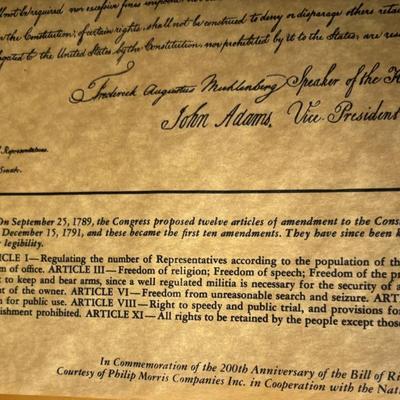 not be required nor excessive fines imposed nor
in the Constitution, of certain rights, shall not be construed to deny or disparage others retai
legated to the United States by the Constitution, nor prohibited by it to the States, are rese
Frederick Augustus Muhlenberg Speaker of the H
John Adams, Vice President
Representatives.
Senate.
On September 25, 1789, the Congress proposed twelve articles of amendment to the Cons
December 15, 1791, and these became the first ten amendments. They have since been k
legibility.
ICLE I—Regulating the number of Representatives according to the population of th
m of office. ARTICLE III—Freedom of religion; Freedom of speech; Freedom of the pr
t to keep and bear arms, since a well regulated militia is necessary for the security of a
nt of the owner. ARTICLE VI—Freedom from unreasonable search and seizure. ART
n for public use. ARTICLE VIII—Right to speedy and public trial, and provisions fo
ishment prohibited. ARTICLE XI—All rights to be retained by the people except thos
In Commemoration of the 200th Anniversary of the Bill of Ri
Courtesy of Philip Morris Companies Inc. in Cooperation with the Nat